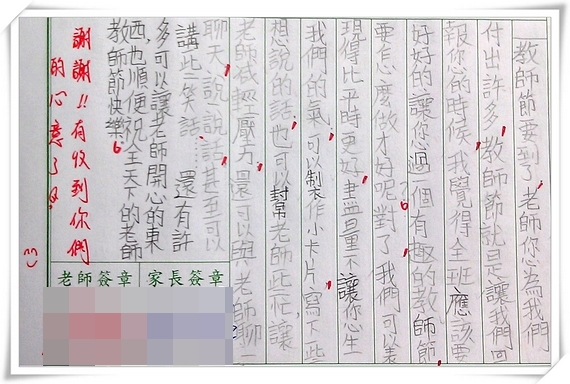 教師節要到了,老師您為我們
付出許多,教師節就是讓我們回
報您的時候,我覺得全班應該要
好好的讓您過一個有趣的教師節
要怎麼做才好呢?對了!我們可以表
現得比平時更好,盡量不讓您生
我們的氣,可以製作小卡片,寫下一些
想說的話,也可以幫老師些忙,讓
老師減輕壓力,還可以與老師聊一
聊天、說說話,甚至可以
講些笑話……還有許
多可以讓老師開心的東
西,也順便祝全天下的老師
教師節快樂。
謝謝!!有收到你們
的心意了
老師簽章
家長簽章